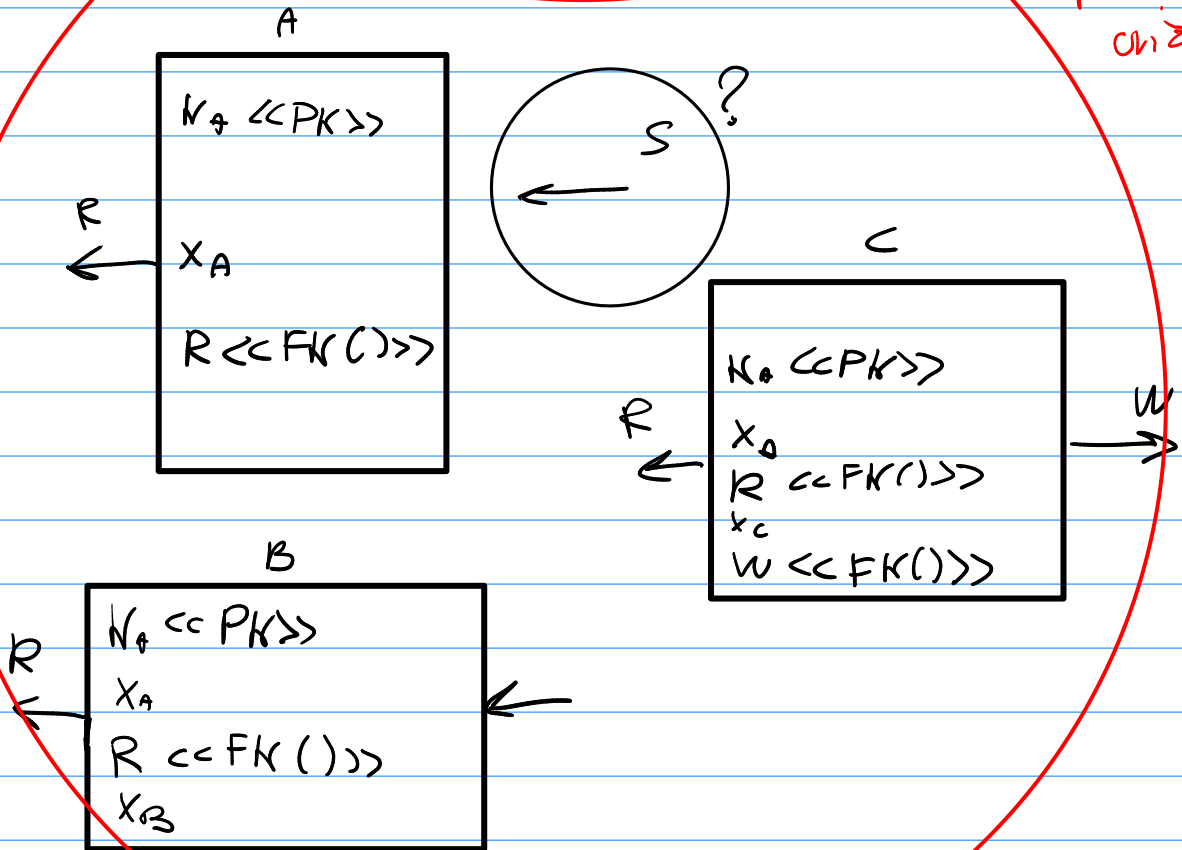 A
N_A <<PK>>
R
X_A
R <<FK()>>
S ?
C
N_A <<PK>>
R
X_A
R <<FK()>>
X_C
W <<FK()>>
W
B
N_A <<PK>>
R
X_A
R <<FK()>>
X_B